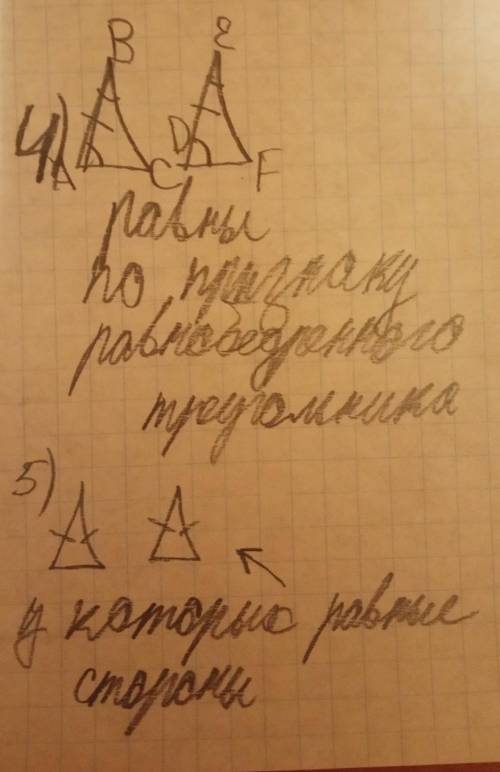 B E
4) A C D F
равны
по признаку
равнобедренного
треугольника
5)
у которых равные
стороны